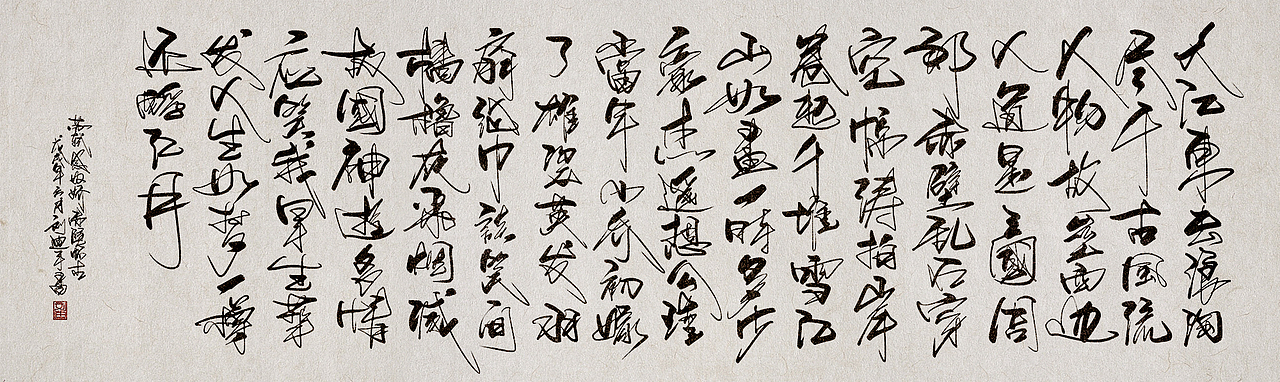 大江東去浪淘
尽千古風流
人物故垒西边
人道是三國周
郎赤壁乱石穿
空惊涛拍岸
卷起千堆雪江
山如畫一時多少
豪杰遥想公瑾
當年小乔初嫁
了雄姿英发羽
扇纶巾談笑间
樯櫓灰飛烟滅
故國神遊多情
应笑我早生華
发人生如梦一樽
还酹江月
苏軾念奴娇赤壁怀古
戊戌年六月